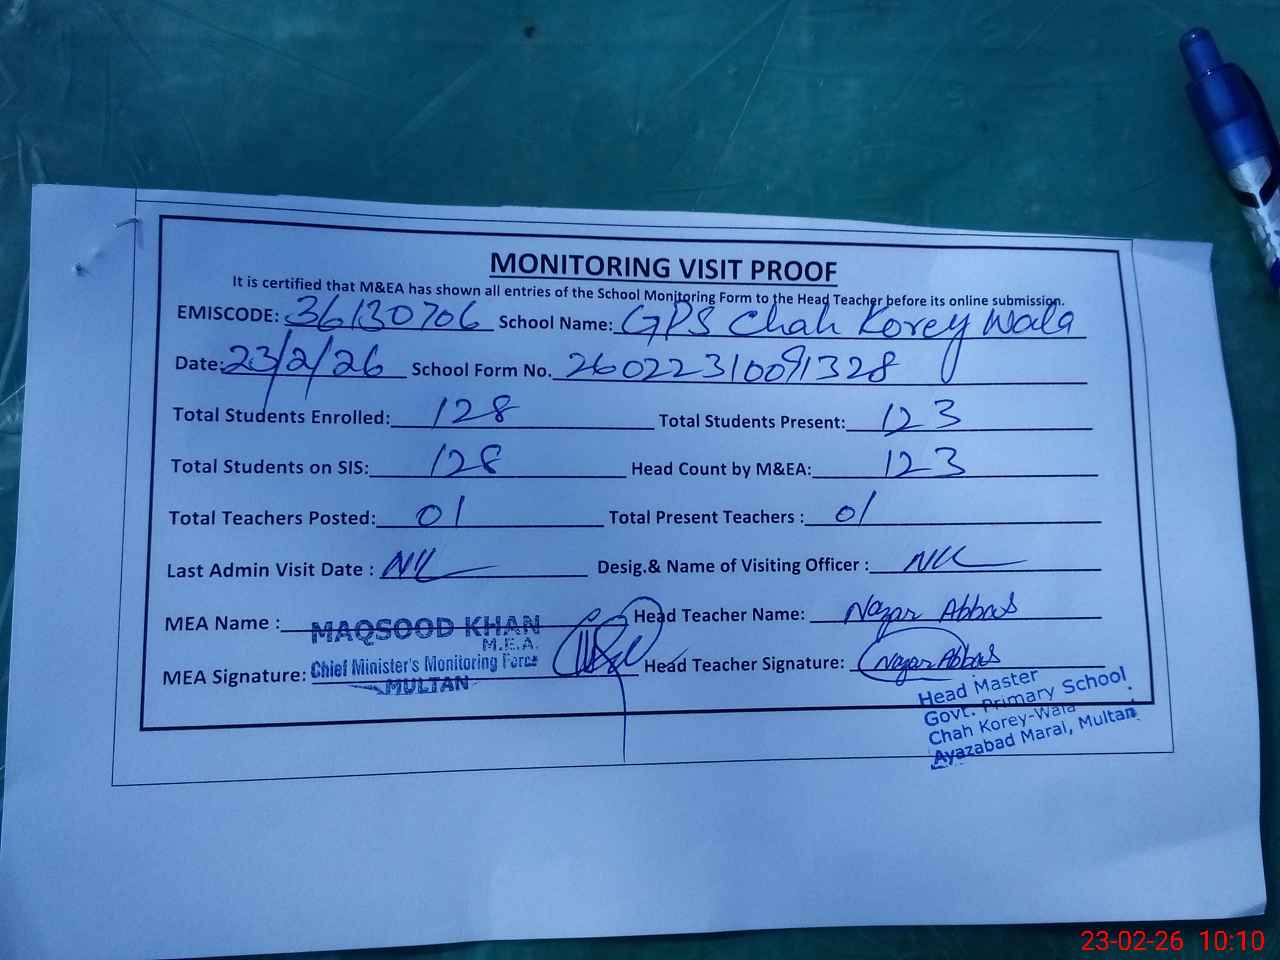 MONITORING VISIT PROOF
It is certified that M&EA has shown all entries of the School Monitoring Form to the Head Teacher before its online submission.
EMISCODE: 36130706 School Name: GPS Chah Korey Wala
Date: 23/2/26 School Form No. 26022310091328
Total Students Enrolled: 128 Total Students Present: 123
Total Students on SIS: 128 Head Count by M&EA: 123
Total Teachers Posted: 01 Total Present Teachers : 01
Last Admin Visit Date : NIL Desig.& Name of Visiting Officer : NIL
MEA Name : MAQSOOD KHAN Head Teacher Name: Nazar Abbas
M.E.A.
MEA Signature: Chief Minister's Monitoring Force Head Teacher Signature: Nazar Abbas
MULTAN
Head Master
Govt. Primary School
Chah Korey-Wala
Ayazabad Maral, Multan
23-02-26 10:10